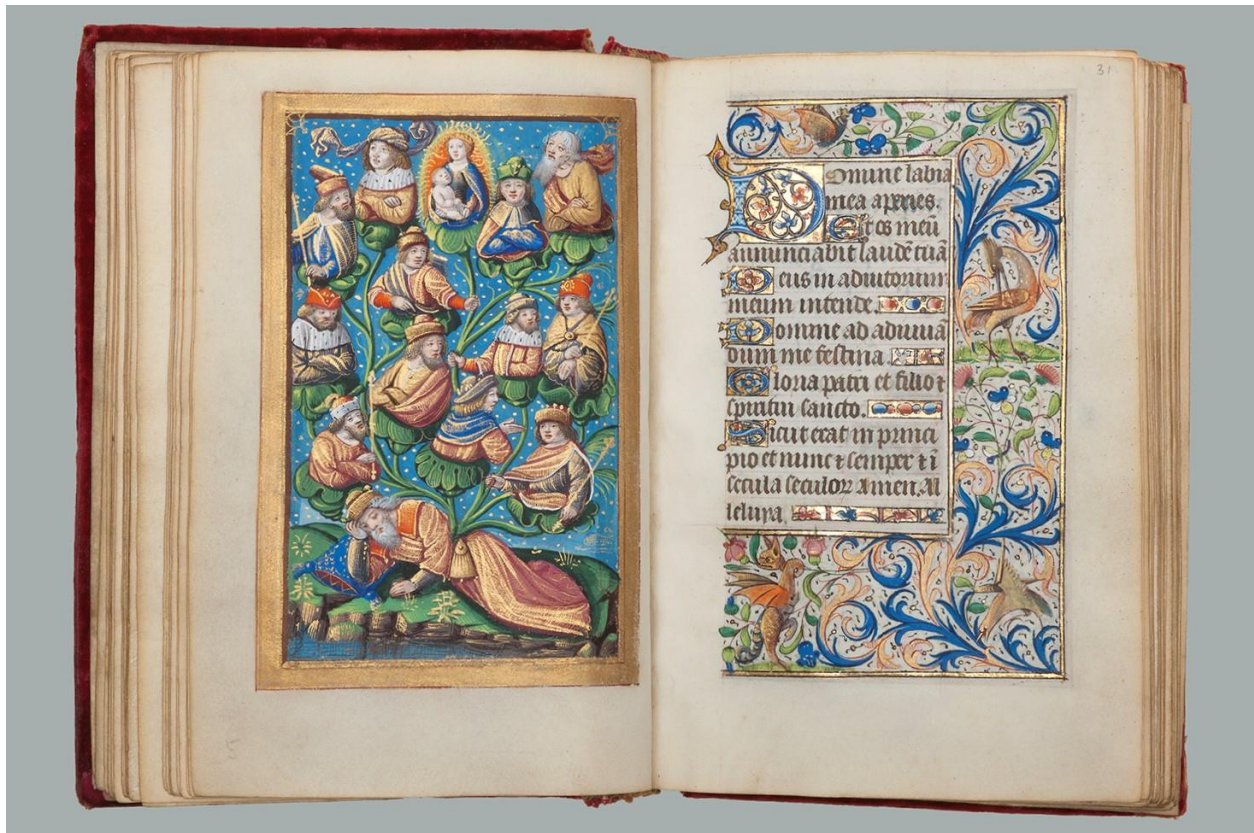 31
Domine labia
mea aperies.
Et os meū
annunciabit laudē tuā
Deus in adiutorium
meum intende.
Domine ad adiuuā
dum me festina.
Gloria patri et filio ⁊
spiritui sancto.
Sicut erat in princi
pio et nunc ⁊ semper ⁊ ī
secula seculoꝝ Amen. Al
leluya.
5